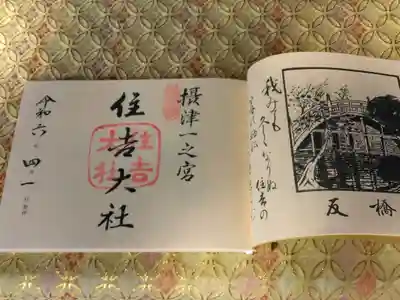 摂津一之宮
住吉大社
住吉
大社
令和六年四月一日
我みても
久しくなりぬ 住吉の
反橋